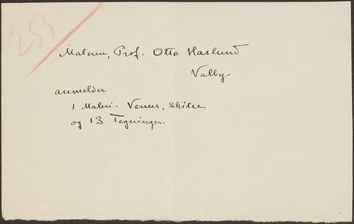 253
Maleren, Prof. Otto Haslund
Valby
anmelder
1 Maleri. Venus, Skitse
og 13 Tegninger.